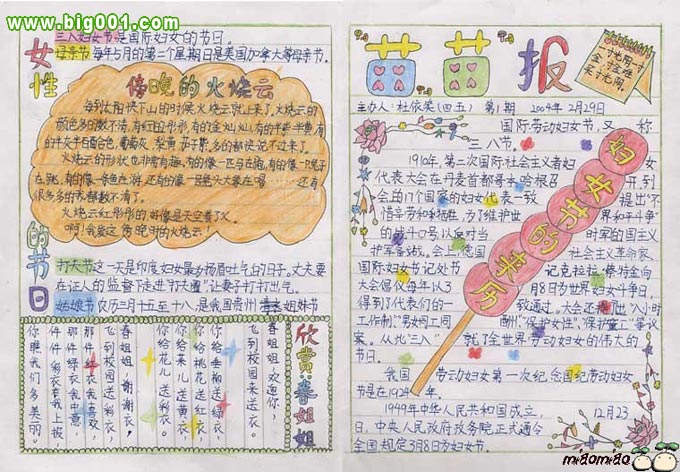 www.big001.com
女性的节日
三八妇女节是国际妇女的节日。
母亲节 每年5月的第二个星期日是美国加拿大等母亲节。
傍晚的火烧云
每到太阳快下山的时候火烧云就上来了。火烧云的
颜色多的数不清,有红的彤彤,有的金灿灿,有的半紫半黄,有
的半灰半百合色,葡萄灰,梨黄,茄子紫,多的都快说不过来了。
火烧云的形状也非常有趣,有的像一匹马在跑,有的像一只兔子
在跳,有的像一条鱼在游,还有的像一只
很多多的我都数不清了。
火烧云红彤彤的,好像是天空着了火。
啊!我爱这傍晚时的火烧云!
打夫节 这一天是印度妇女最扬眉吐气的日子。丈夫要
在证人的监督下走进“打夫道”让妻子打打出气。
姑娘节 农历三月十五至十八,是我国贵州 姐妹节
欣赏·春姐姐
春姐姐,欢迎你,
飞到校园来送衣。
你给垂柳送绿衣,
你给桃花送红衣,
你给菜儿送黄衣,
你给花儿送彩衣。
春姐姐,谢谢衣,
飞到校园送彩衣。
那件绿衣我喜欢,
那件红衣我中意,
件件彩衣套我上报,
你瞧我们多美丽。
苗苗报
一寸光阴一寸
金,寸金难
买寸光阴。
主办人:杜依柔(四五) 第1期 2004年2月29日
妇女节的来历
国际劳动妇女节,又称
三八节。
1910年,第二次国际社会主义者妇女
代表大会在丹麦首都哥本哈根召开,到
会的17个国家的妇女代表一致提出“不
惜辛劳和牺牲,为了维护世界和平斗争”
的战斗口号以反对当时军的国主义
扩军备战。会上,德国社会主义革命家、
国际妇女节记处书记克拉拉·蔡特金向
大会倡仪每年以3月8日为世界妇女斗争日,
得到了代表们的一致通过。大会还提出“八小时
工作制”“男女同工同酬”,“保护女性”,“保护童工”等议
案。从此“三八”就了全世界劳动妇女的伟大的
节日。
我国劳动妇女第一次纪念国纪劳动妇女
节是在1924年。
1949年中华人民共和国成立,12月23
日,中央人民政府政务院正式通令
全国规定3月8日为妇女节。
miaomiao